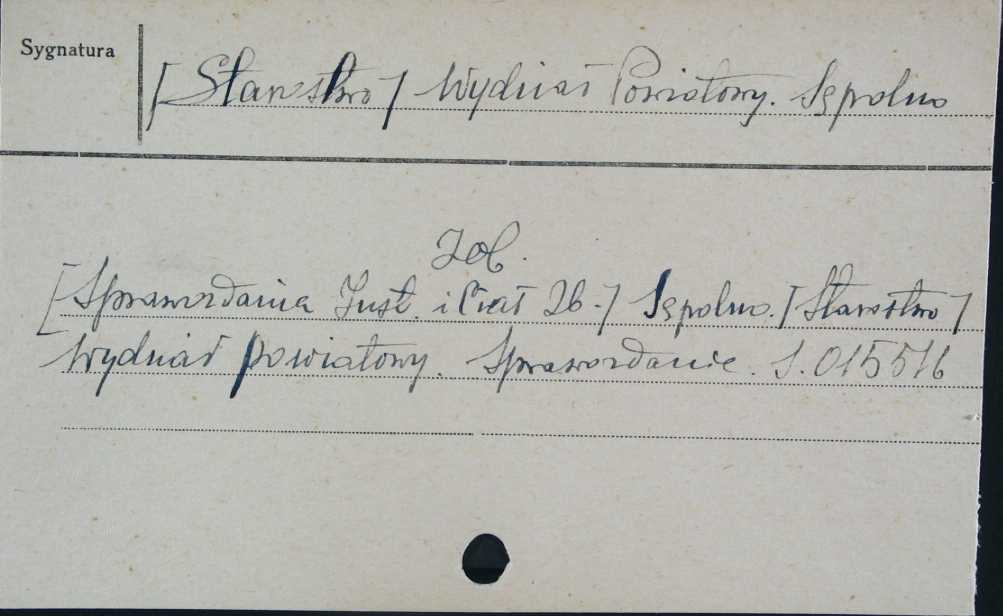 Sygnatura
[Starostwo] Wydział Powiatowy. Sępolno
Zob.
[Sprawozdania Inst. i Ciał Zb.] Sępolno. [Starostwo]
Wydział Powiatowy. Sprawozdanie. S. 015516